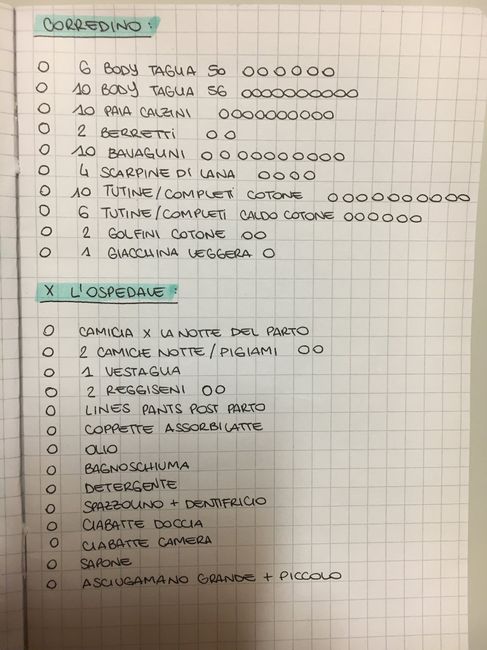 CORREDINO:
6 BODY TAGLIA 50
10 BODY TAGLIA 56
10 PAIA CALZINI
2 BERRETTI
10 BAVAGLINI
4 SCARPINE DI LANA
10 TUTINE/COMPLETI COTONE
6 TUTINE/COMPLETI CALDO COTONE
2 GOLFINI COTONE
1 GIACCHINA LEGGERA
X L'OSPEDALE:
CAMICIA X LA NOTTE DEL PARTO
2 CAMICIE NOTTE/PIGIAMI
1 VESTAGLIA
2 REGGISENI
LINES PANTS POST PARTO
COPPETTE ASSORBILATTE
OLIO
BAGNOSCHIUMA
DETERGENTE
SPAZZOLINO + DENTIFRICIO
CIABATTE DOCCIA
CIABATTE CAMERA
SAPONE
ASCIUGAMANO GRANDE + PICCOLO